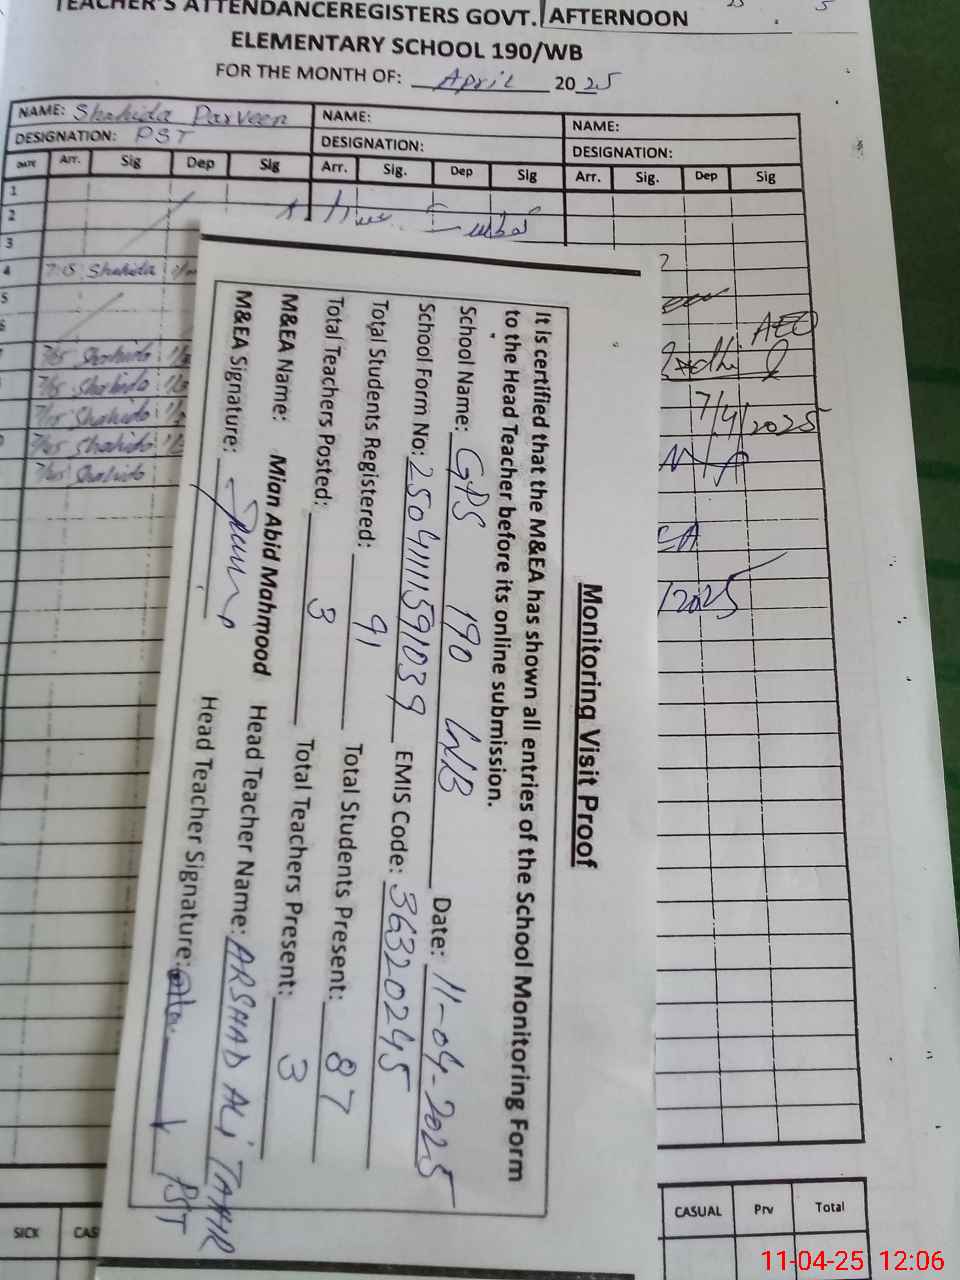 TEACHER'S ATTENDANCEREGISTERS GOVT. AFTERNOON
ELEMENTARY SCHOOL 190/WB
FOR THE MONTH OF: April 2025
NAME: Shahida Parveen NAME: NAME:
DESIGNATION: PST DESIGNATION: DESIGNATION:
DATE Arr. Sig Dep Sig Arr. Sig. Dep Sig Arr. Sig. Dep Sig
1
2
3
4 7:15 Shahida
5
6
7/15 Shahida
7/15 Shahida
7/15 Shahida
7/15 Shahida
7/15 Shahida
AEO
7/4/2025
/2025
Monitoring Visit Proof
It is certified that the M&EA has shown all entries of the School Monitoring Form
to the Head Teacher before its online submission.
School Name: GPS 190 WB Date: 11-04-2025
School Form No: 2504111591039 EMIS Code: 36320245
Total Students Registered: 91 Total Students Present: 87
Total Teachers Posted: 3 Total Teachers Present: 3
M&EA Name: Mian Abid Mahmood Head Teacher Name: ARSHAD ALi TAHIR
M&EA Signature: Head Teacher Signature: PST
SICK CAS CASUAL Prv Total
11-04-25 12:06